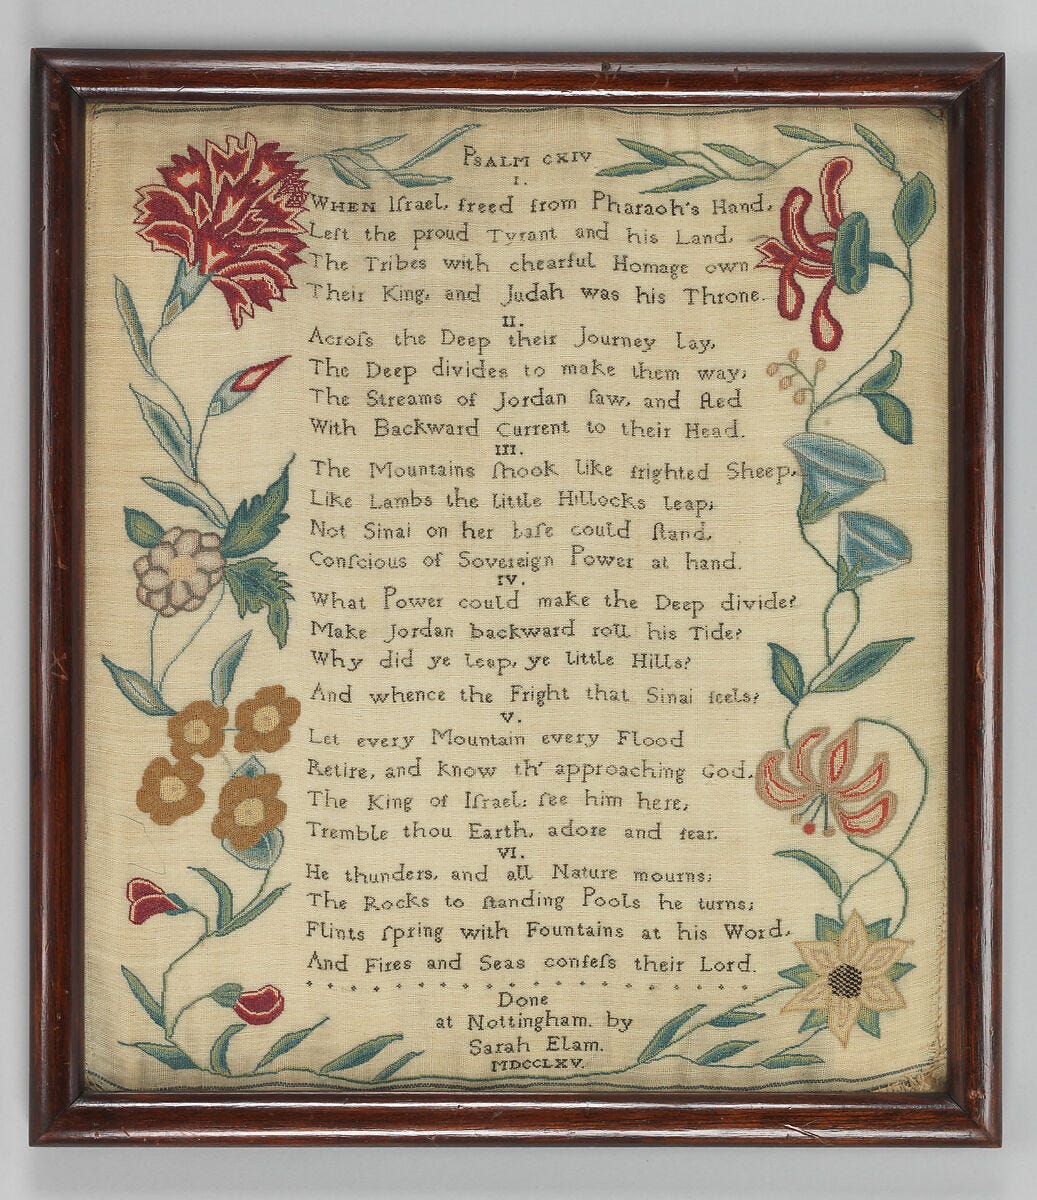 PSALM CXIV
I.
WHEN Iſrael, freed from Pharaoh's Hand,
Left the proud Tyrant and his Land,
The Tribes with chearful Homage own
Their King, and Judah was his Throne.
II.
Acroſs the Deep their Journey lay,
The Deep divides to make them way;
The Streams of Jordan ſaw, and fled
With Backward Current to their Head.
III.
The Mountains ſhook like frighted Sheep,
Like Lambs the little Hillocks leap;
Not Sinai on her baſe could ſtand,
Conſcious of Sovereign Power at hand.
IV.
What Power could make the Deep divide?
Make Jordan backward roll his Tide?
Why did ye leap, ye little Hills?
And whence the Fright that Sinai feels?
V.
Let every Mountain every Flood
Retire, and know th' approaching God,
The King of Iſrael: ſee him here;
Tremble thou Earth, adore and fear.
VI.
He thunders, and all Nature mourns;
The Rocks to ſtanding Pools he turns;
Flints ſpring with Fountains at his Word,
And Fires and Seas confeſs their Lord.
Done
at Nottingham. by
Sarah Elam.
MDCCLXV.